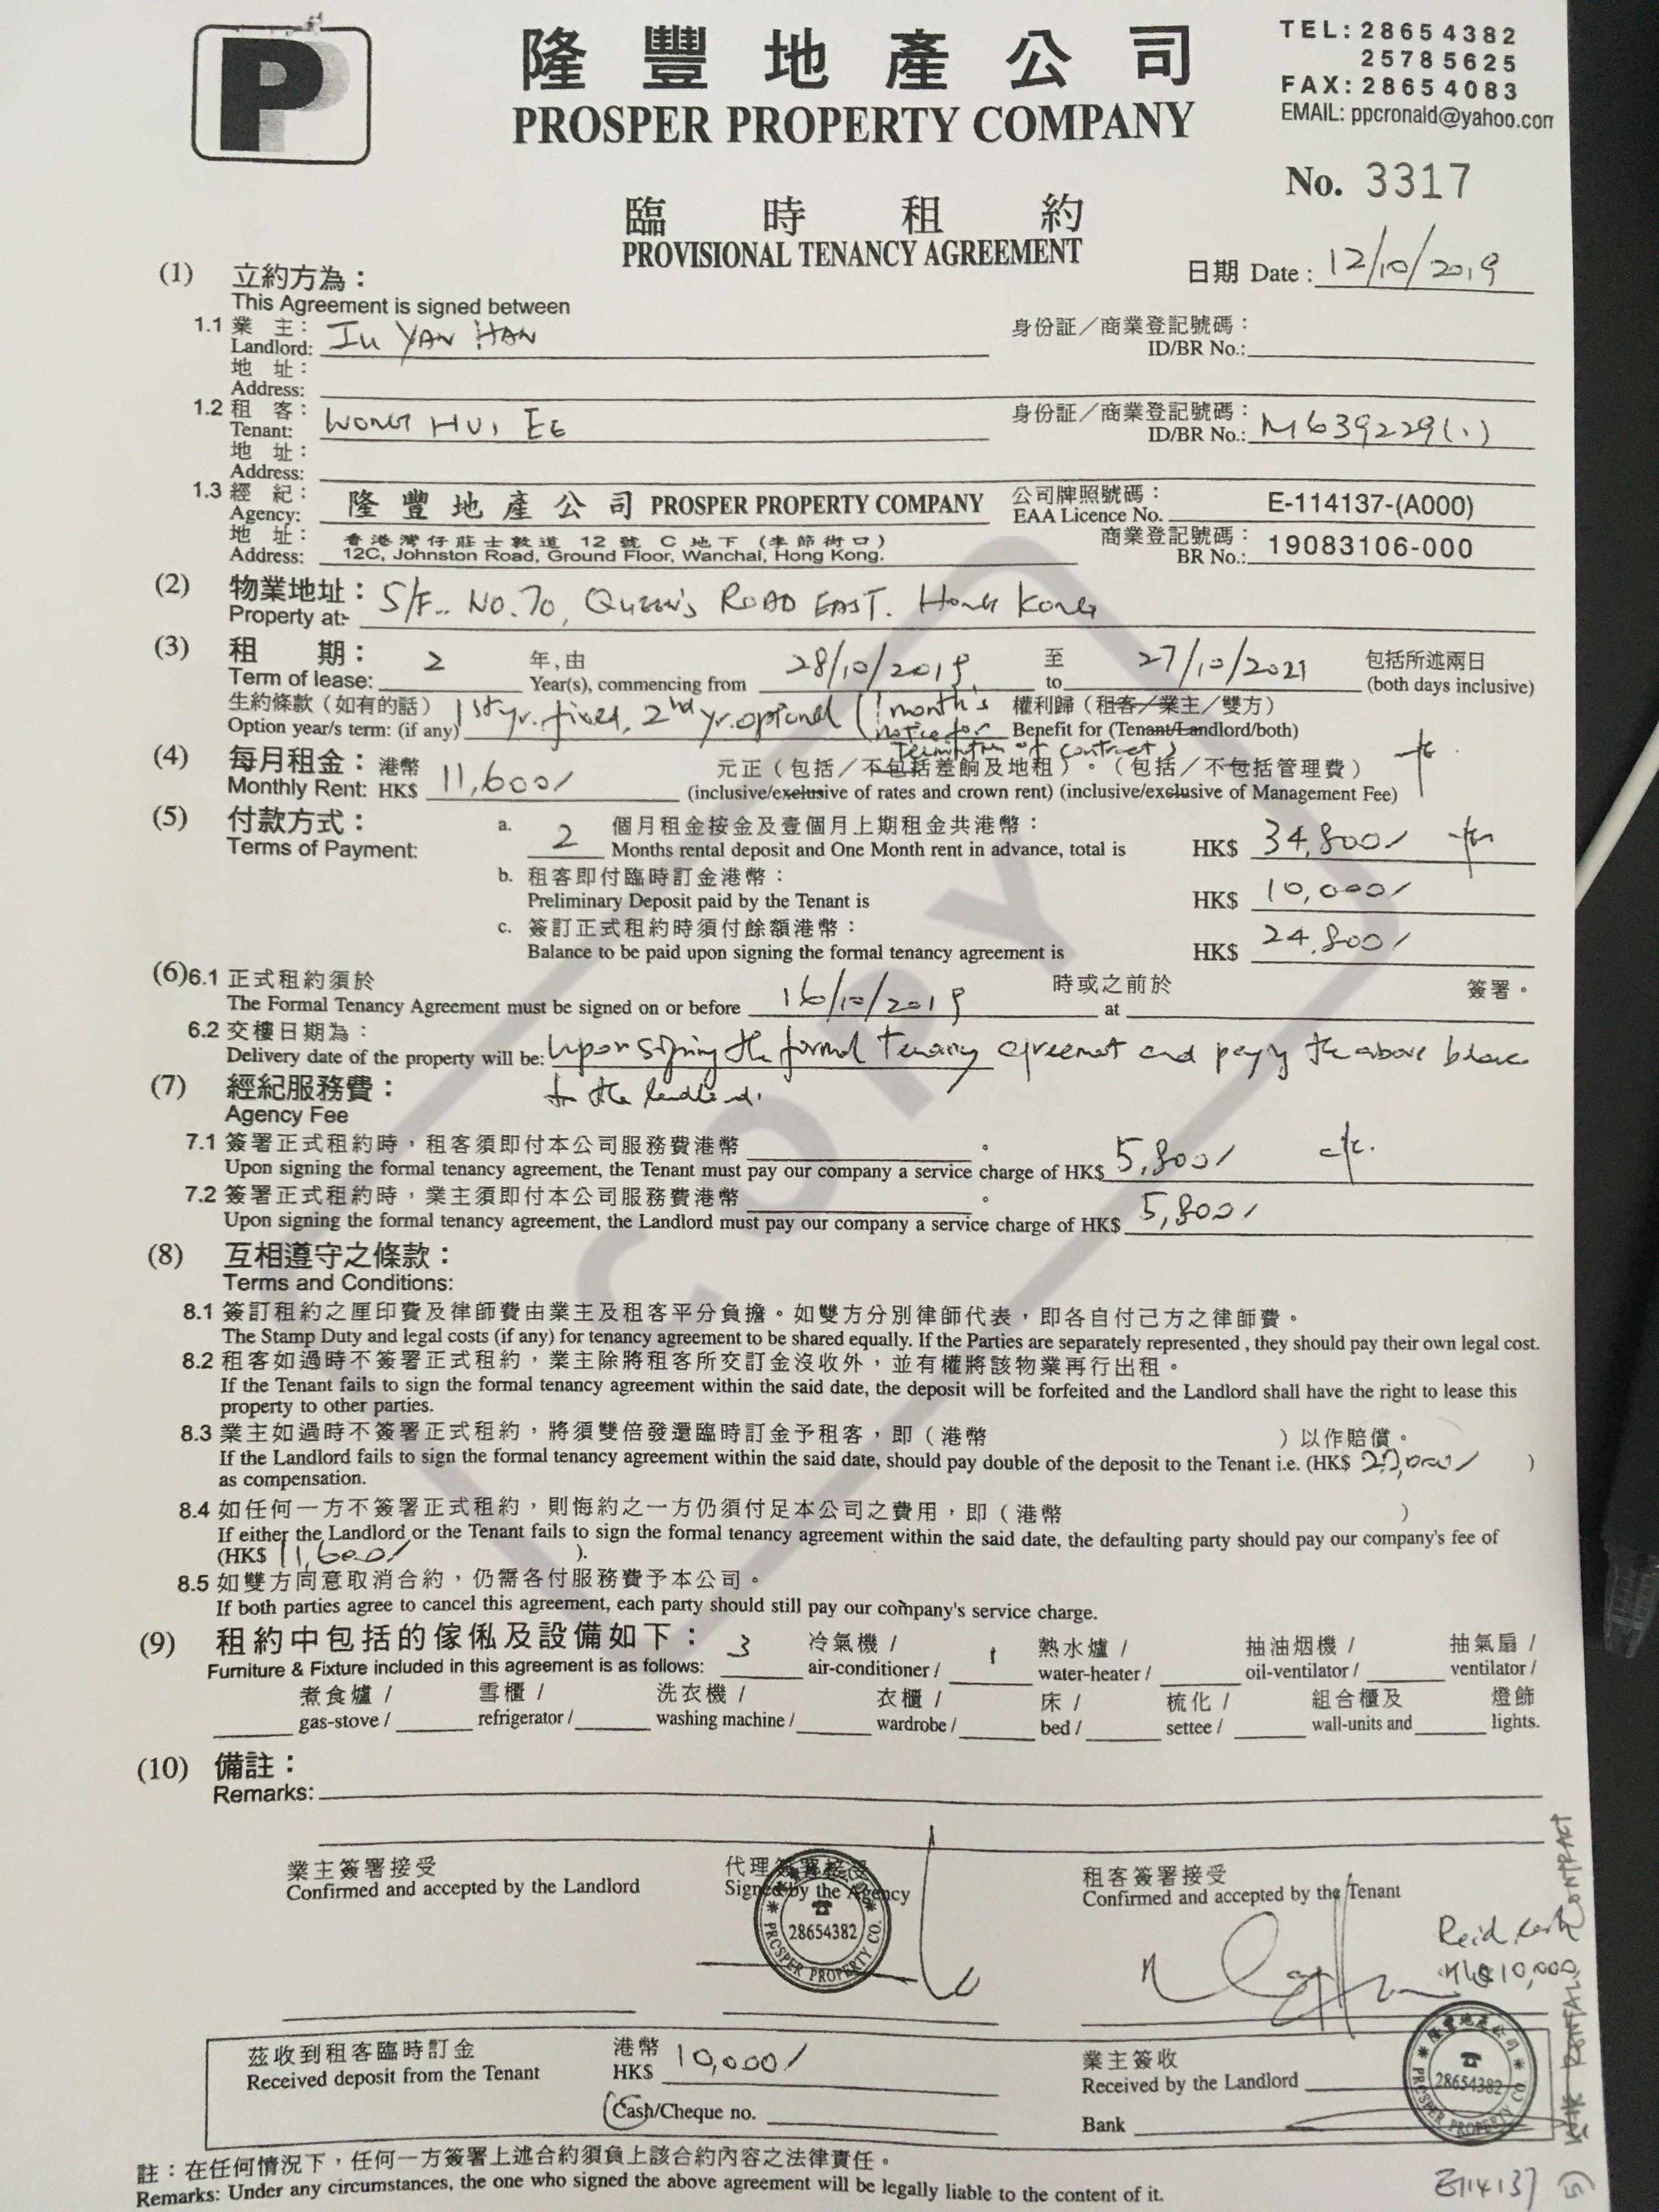 P
隆豐地產公司
PROSPER PROPERTY COMPANY
TEL: 2865 4382
2578 5625
FAX: 2865 4083
EMAIL: ppcronald@yahoo.com
No. 3317
臨時租約
PROVISIONAL TENANCY AGREEMENT
日期 Date : 12/10/2019
(1) 立約方為：
This Agreement is signed between
1.1 業主： 身份証／商業登記號碼：
Landlord: IU YAN HAN ID/BR No.:
地址：
Address:
1.2 租客： 身份証／商業登記號碼：
Tenant: WONG HUI EE ID/BR No.: M639229(1)
地址：
Address:
1.3 經紀： 隆豐地產公司 PROSPER PROPERTY COMPANY 公司牌照號碼：
Agency: EAA Licence No. E-114137-(A000)
地址： 香港灣仔莊士敦道 12 號 C 地下 (李節街口) 商業登記號碼：
Address: 12C, Johnston Road, Ground Floor, Wanchai, Hong Kong. BR No.: 19083106-000
(2) 物業地址：
Property at:- 5/F., No.70, QUEEN'S ROAD EAST. HONG KONG
(3) 租期： 2 年，由 28/10/2019 至 27/10/2021 包括所述兩日
Term of lease: Year(s), commencing from to (both days inclusive)
生約條款（如有的話） 權利歸（租客／業主／雙方）
Option year's term: (if any) 1st yr. fixed, 2nd yr. optional (1 month's notice for termination of contract) Benefit for (Tenant/Landlord/both)
(4) 每月租金：港幣 元正（包括／不包括差餉及地租）。（包括／不包括管理費）
Monthly Rent: HK$ 11,600/ (inclusive/exclusive of rates and crown rent) (inclusive/exclusive of Management Fee)
(5) 付款方式： a. 2 個月租金按金及壹個月上期租金共港幣：
Terms of Payment: Months rental deposit and One Month rent in advance, total is HK$ 34,800/
b. 租客即付臨時訂金港幣：
Preliminary Deposit paid by the Tenant is HK$ 10,000/
c. 簽訂正式租約時須付餘額港幣：
Balance to be paid upon signing the formal tenancy agreement is HK$ 24,800/
(6) 6.1 正式租約須於 時或之前於 簽署。
The Formal Tenancy Agreement must be signed on or before 16/10/2019 at
6.2 交樓日期為：
Delivery date of the property will be: Upon signing the formal tenancy agreement and paying the above balance
to the landlord.
(7) 經紀服務費：
Agency Fee
7.1 簽署正式租約時，租客須即付本公司服務費港幣 。
Upon signing the formal tenancy agreement, the Tenant must pay our company a service charge of HK$ 5,800/
7.2 簽署正式租約時，業主須即付本公司服務費港幣 。
Upon signing the formal tenancy agreement, the Landlord must pay our company a service charge of HK$ 5,800/
(8) 互相遵守之條款：
Terms and Conditions:
8.1 簽訂租約之厘印費及律師費由業主及租客平分負擔。如雙方分別律師代表，即各自付己方之律師費。
The Stamp Duty and legal costs (if any) for tenancy agreement to be shared equally. If the Parties are separately represented , they should pay their own legal cost.
8.2 租客如過時不簽署正式租約，業主除將租客所交訂金沒收外，並有權將該物業再行出租。
If the Tenant fails to sign the formal tenancy agreement within the said date, the deposit will be forfeited and the Landlord shall have the right to lease this
property to other parties.
8.3 業主如過時不簽署正式租約，將須雙倍發還臨時訂金予租客，即（港幣 ）以作賠償。
If the Landlord fails to sign the formal tenancy agreement within the said date, should pay double of the deposit to the Tenant i.e. (HK$ 20,000/ )
as compensation.
8.4 如任何一方不簽署正式租約，則悔約之一方仍須付足本公司之費用，即（港幣 ）
If either the Landlord or the Tenant fails to sign the formal tenancy agreement within the said date, the defaulting party should pay our company's fee of
(HK$ 11,600/ ).
8.5 如雙方同意取消合約，仍需各付服務費予本公司。
If both parties agree to cancel this agreement, each party should still pay our company's service charge.
(9) 租約中包括的傢俬及設備如下： 3 冷氣機 / 1 熱水爐 / 抽油烟機 / 抽氣扇 /
Furniture & Fixture included in this agreement is as follows: air-conditioner / water-heater / oil-ventilator / ventilator /
煮食爐 / 雪櫃 / 洗衣機 / 衣櫃 / 床 / 梳化 / 組合櫃及 燈飾
gas-stove / refrigerator / washing machine / wardrobe / bed / settee / wall-units and lights.
(10) 備註：
Remarks:
COPY
業主簽署接受 代理簽署接受 租客簽署接受
Confirmed and accepted by the Landlord Signed by the Agency Confirmed and accepted by the Tenant
28654382
PROSPER PROPERTY CO.
HK$10,000
茲收到租客臨時訂金 港幣 業主簽收
Received deposit from the Tenant HK$ 10,000/ Received by the Landlord
Cash/Cheque no. Bank
隆豐地產公司
28654382
PROSPER PROPERTY CO.
RENTAL CONTRACT
註：在任何情況下，任何一方簽署上述合約須負上該合約內容之法律責任。
Remarks: Under any circumstances, the one who signed the above agreement will be legally liable to the content of it.
E114137